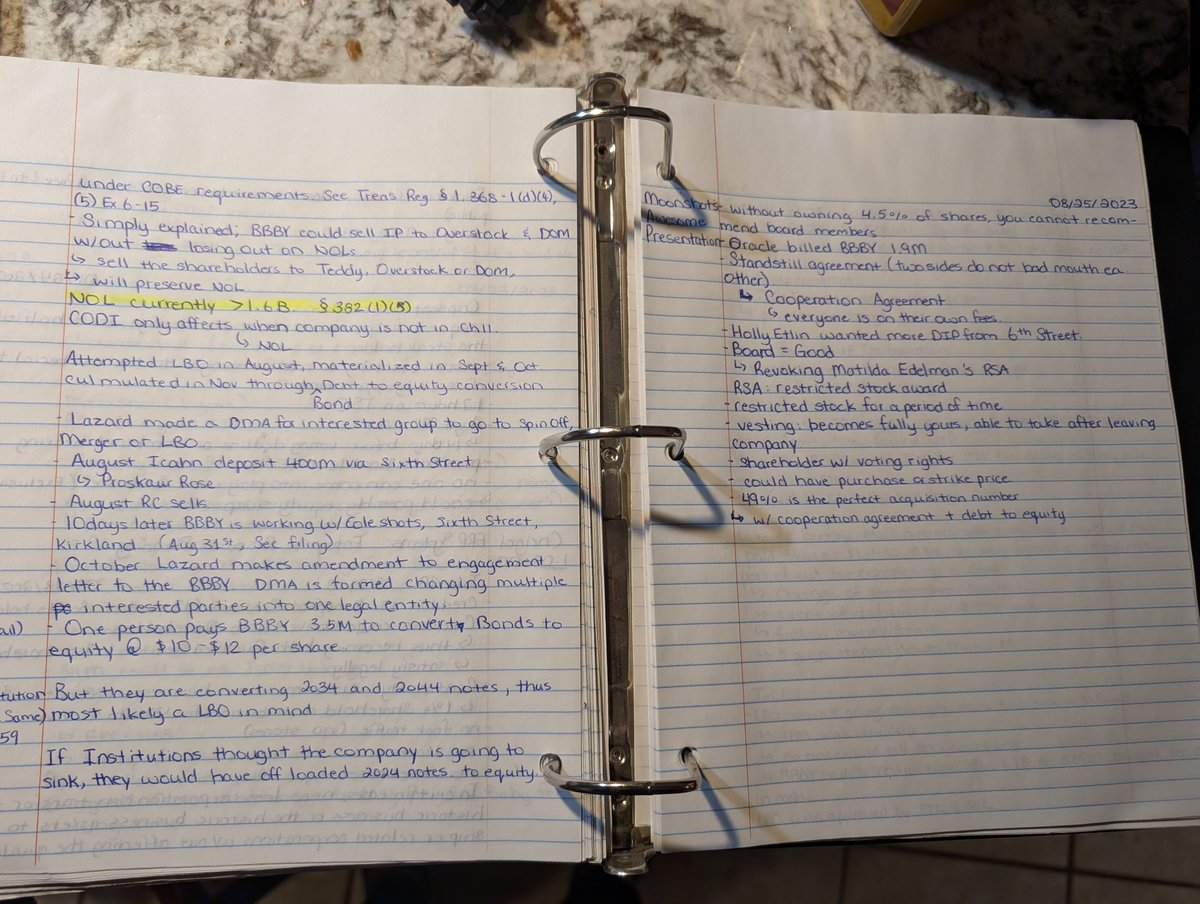 under COBE requirements. See Treas Reg § 1.368-1(d)(4),
(5) Ex 6-15
- Simply explained; BBBY could sell IP to Overstock & DOM
w/out losing out on NOLs.
↳ sell the shareholders to Teddy, Overstock or Dom,
↳ will preserve NOL.
NOL currently >1.6B. § 382(1)(5)
CODI only affects when company is not in Ch11.
↳ NOL
Attempted LBO in August, materialized in Sept & Oct
culmulated in Nov through ^ Debt to equity conversion
Bond
- Lazard made a DMA for interested group to go to Spin Off,
Merger or LBO
- August Icahn deposit 400m via Sixth Street
↳ Proskaur Rose
- August RC sells
- 10 days later BBBY is working w/ Coleshots, Sixth Street,
Kirkland (Aug 31st, Sec filing)
- October Lazard makes amendment to engagement
letter to the BBBY. DMA is formed changing multiple
interested parties into one legal entity.
ail) - One person pays BBBY 3.5M to convert Bonds to
equity @ $10-$12 per share
tution But they are converting 2034 and 2044 notes, thus
Same) most likely a LBO in mind
59
If Institutions thought the company is going to
sink, they would have off loaded 2024 notes. to equity.
08/25/2023
Moonshots - without owning 4.5% of shares, you cannot recom-
Awesome mend board members
Presentation - Oracle billed BBBY 1.9M
- Standstill agreement (two sides do not bad mouth ea.
other)
↳ Cooperation Agreement
↳ everyone is on their own fees.
- Holly Etlin wanted more DIP from 6th Street.
- Board = Good
↳ Revoking Matilda Edelman's RSA
RSA: restricted stock award
- restricted stock for a period of time
- vesting: becomes fully yours, able to take after leaving
company
- shareholder w/ voting rights
- could have purchase or strike price
- 49% is the perfect acquisition number
↳ w/ cooperation agreement + debt to equity